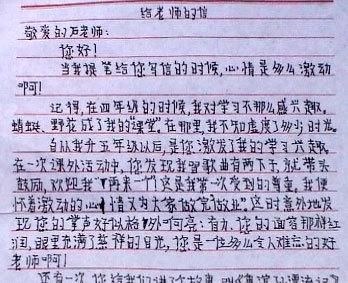 给老师的信
敬爱的石老师:
您好!
当我提笔给您写信的时候,心情是多么激动
啊!
记得,在四年级的时候,我对学习不那么感兴趣。
蜻蜓、野花成了我的"课堂"。在那里,我不知虚度了多少时光。
自从我升五年级以后,是您激发了我的学习兴趣。
在一次课外活动中,您发现我唱歌曲有两下子,就带头
鼓励,欢迎我"再来一个"这是我第一次受到的尊重,我便
怀着激动的心情又为大家做完做业"这时意外地发
现您的掌声好似格外响亮:有力,您的面容那样红
润,眼里充满了慈祥的目光,您是一位多么令人难忘的好
老师啊!
还有一次,您给我们讲了故事